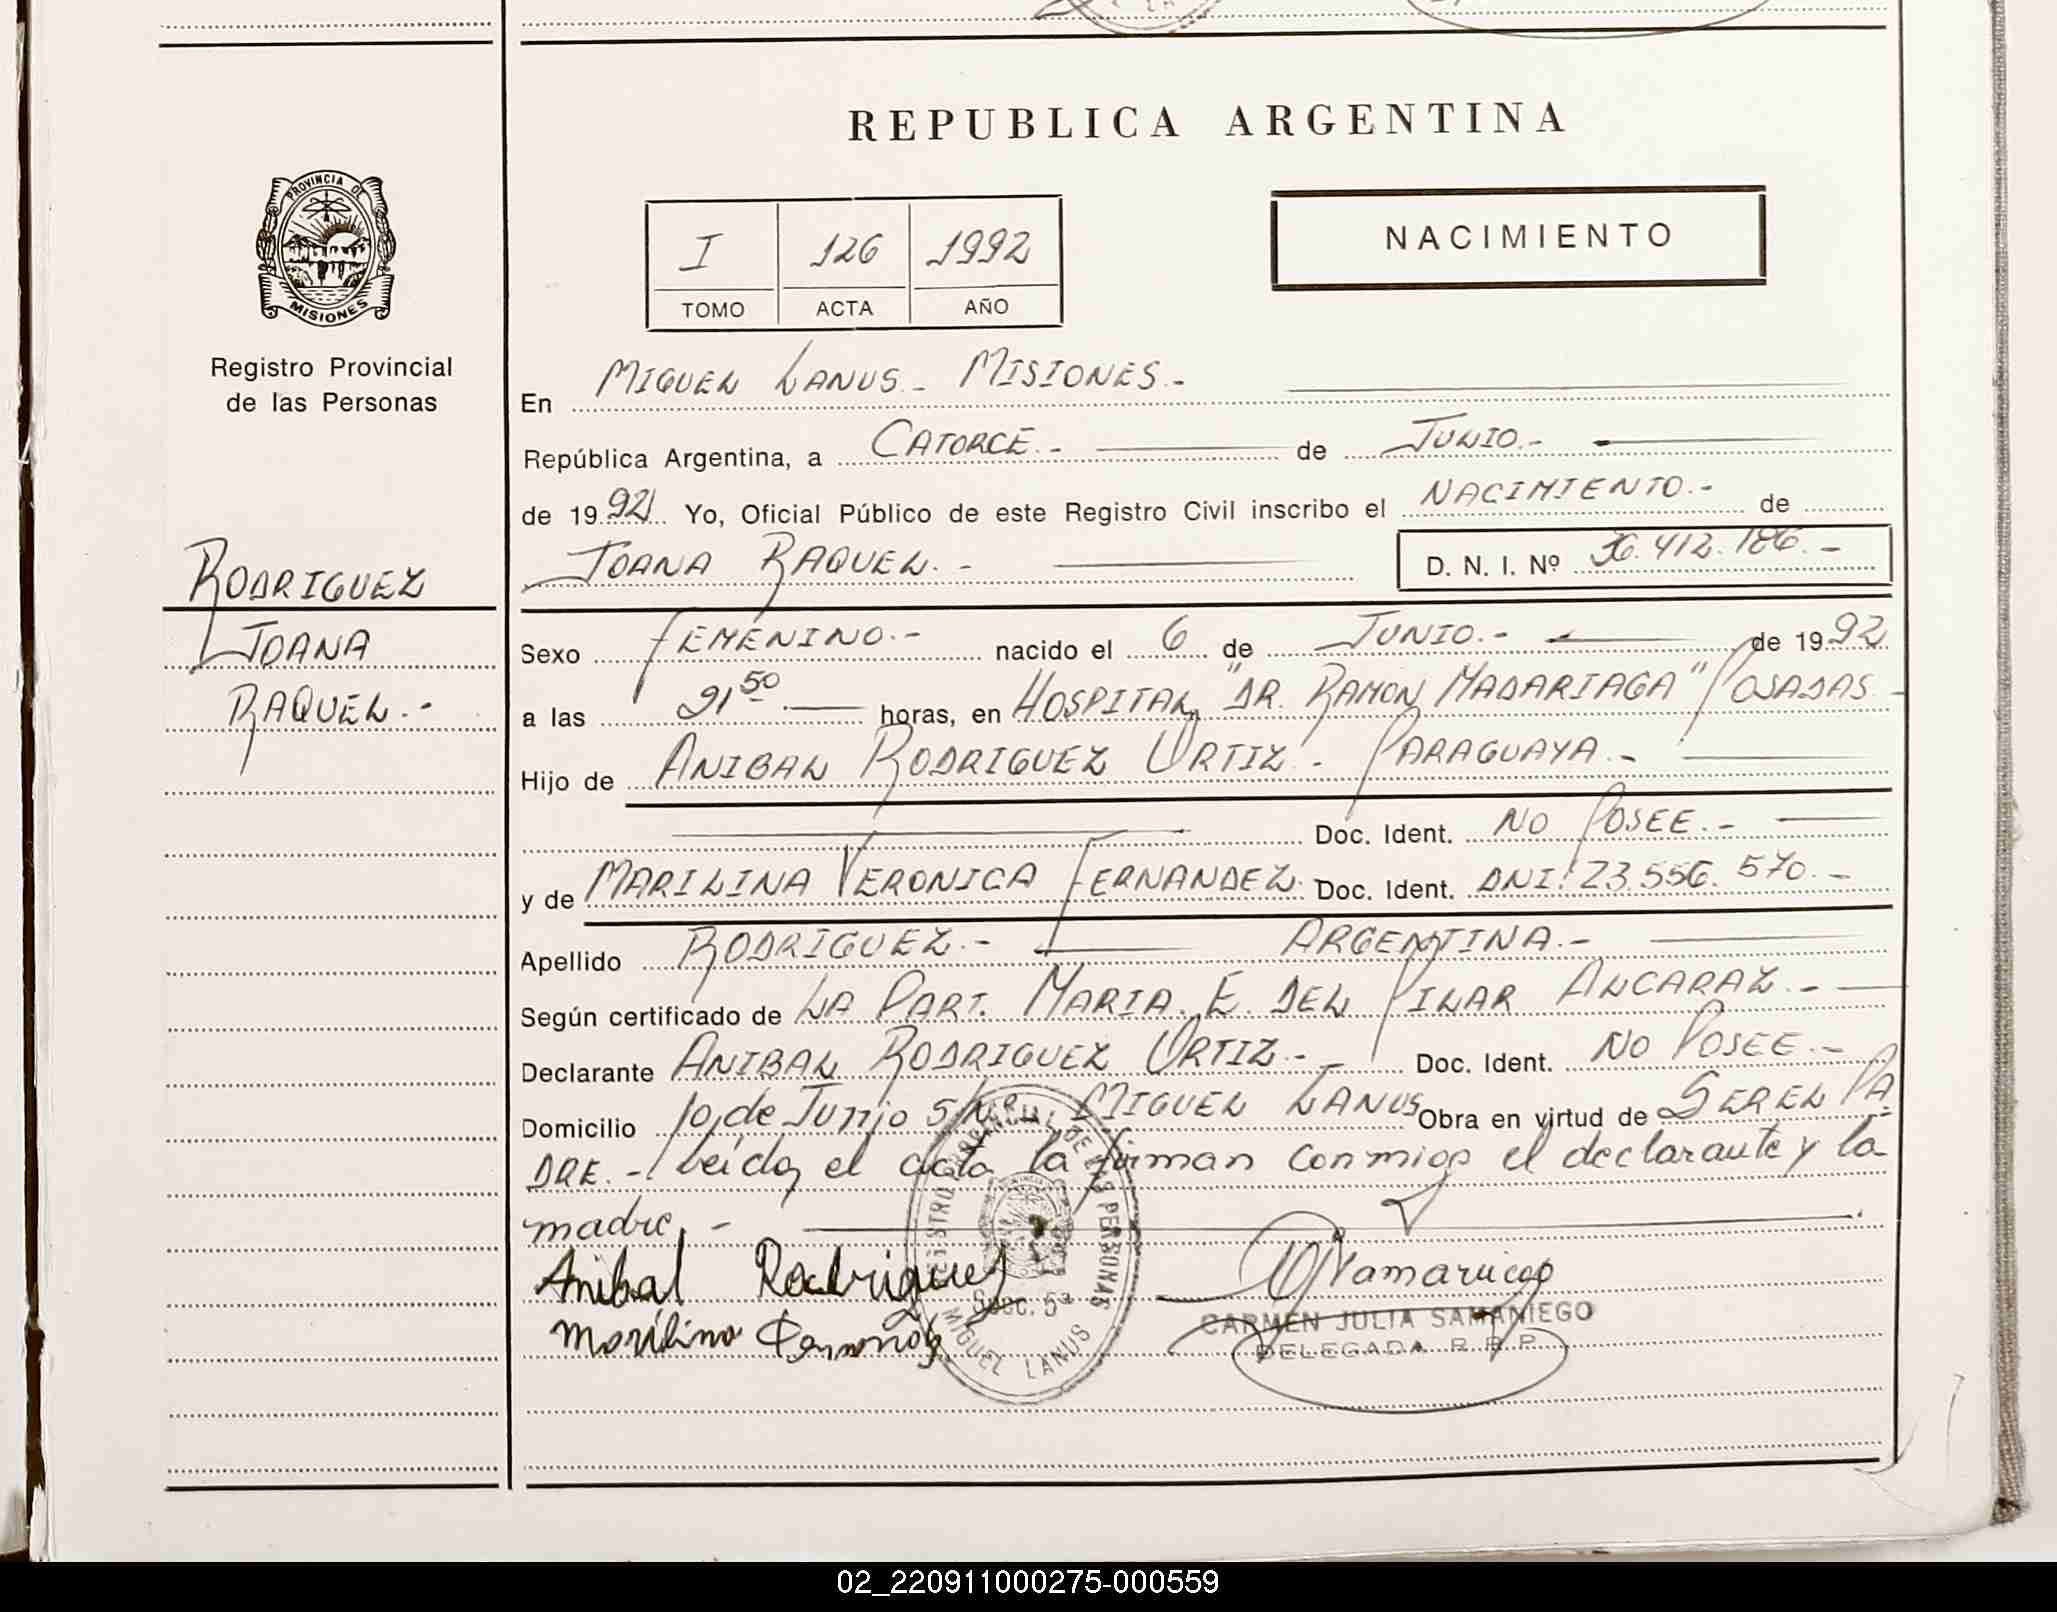 REPUBLICA ARGENTINA
PROVINCIA DE
MISIONES
Registro Provincial
de las Personas
I 126 1992
TOMO ACTA AÑO
NACIMIENTO
En MIGUEL LANUS - MISIONES.-
República Argentina, a CATORCE.- de JUNIO.-
de 1992. Yo, Oficial Público de este Registro Civil inscribo el NACIMIENTO.- de
JOANA RAQUEL.- D. N. I. Nº 36.412.186.-
RODRIGUEZ
JOANA
RAQUEL.-
Sexo FEMENINO.- nacido el 6 de JUNIO.- de 1992
a las 21 50 horas, en HOSPITAL "DR. RAMON MADARIAGA" POSADAS.-
Hijo de ANIBAL RODRIGUEZ ORTIZ.- PARAGUAYA.-
Doc. Ident. NO POSEE.-
y de MARILINA VERONICA FERNANDEZ. Doc. Ident. DNI: 23.556.570.-
Apellido RODRIGUEZ.- ARGENTINA.-
Según certificado de LA PART. MARIA. E. DEL PILAR ALCARAZ.-
Declarante ANIBAL RODRIGUEZ ORTIZ.- Doc. Ident. NO POSEE.-
Domicilio 10 de Junio S/Nº MIGUEL LANUS Obra en virtud de SER EL PA-
DRE.- Leída el acta la firman conmigo el declarante y la
madre.-
Anibal Rodriguez
Marilina Fernandez
REGISTRO PROVINCIAL DE LAS PERSONAS
Secc. 5ª
MIGUEL LANUS
CARMEN JULIA SAMANIEGO
DELEGADA R. P. P.
02_220911000275-000559